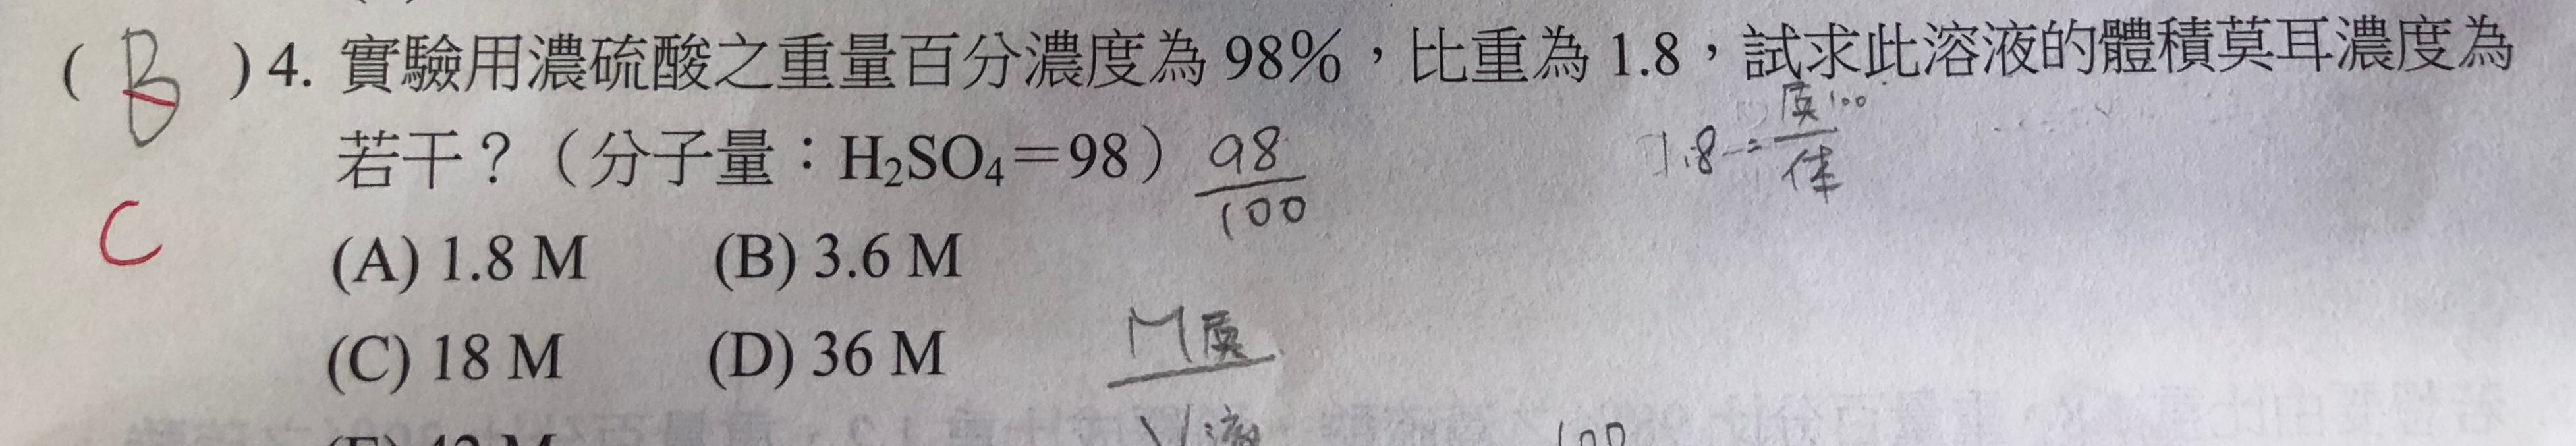 ( B ) 4. 實驗用濃硫酸之重量百分濃度為 98%，比重為 1.8，試求此溶液的體積莫耳濃度為
質100
1.8=
体
若干？（分子量：H₂SO₄＝98）
98
100
C
(A) 1.8 M (B) 3.6 M
(C) 18 M (D) 36 M
M質
V液
100
(E) 42 M